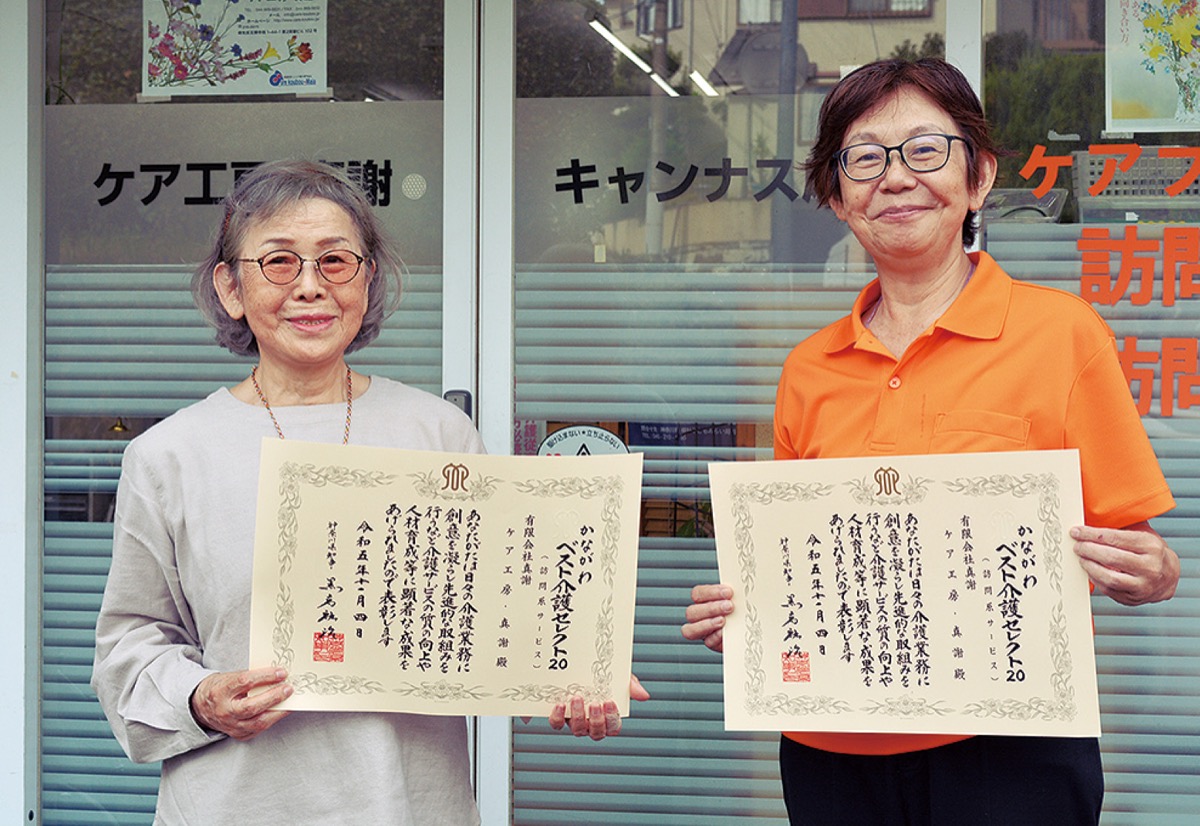 ケア工房
謝
キャンナス
ケアプ
訪問
訪問
駆け込まない★立ち止らない
かながわ
ベスト介護セレクト20
(訪問系サービス)
有限会社真謝
ケア工房・真謝殿
あなたがたは日々の介護業務に
創意を凝らし先進的な取組みを
行うなど介護サービスの質の向上や
人材育成等に顕著な成果を
あげられましたので表彰します
令和五年十二月四日
神奈川県知事 黒岩祐治
かながわ
ベスト介護セレクト20
(訪問系サービス)
有限会社真謝
ケア工房・真謝殿
あなたがたは日々の介護業務に
創意を凝らし先進的な取組みを
行うなど介護サービスの質の向上や
人材育成等に顕著な成果を
あげられましたので表彰します
令和五年十二月四日
神奈川県知事 黒岩祐治